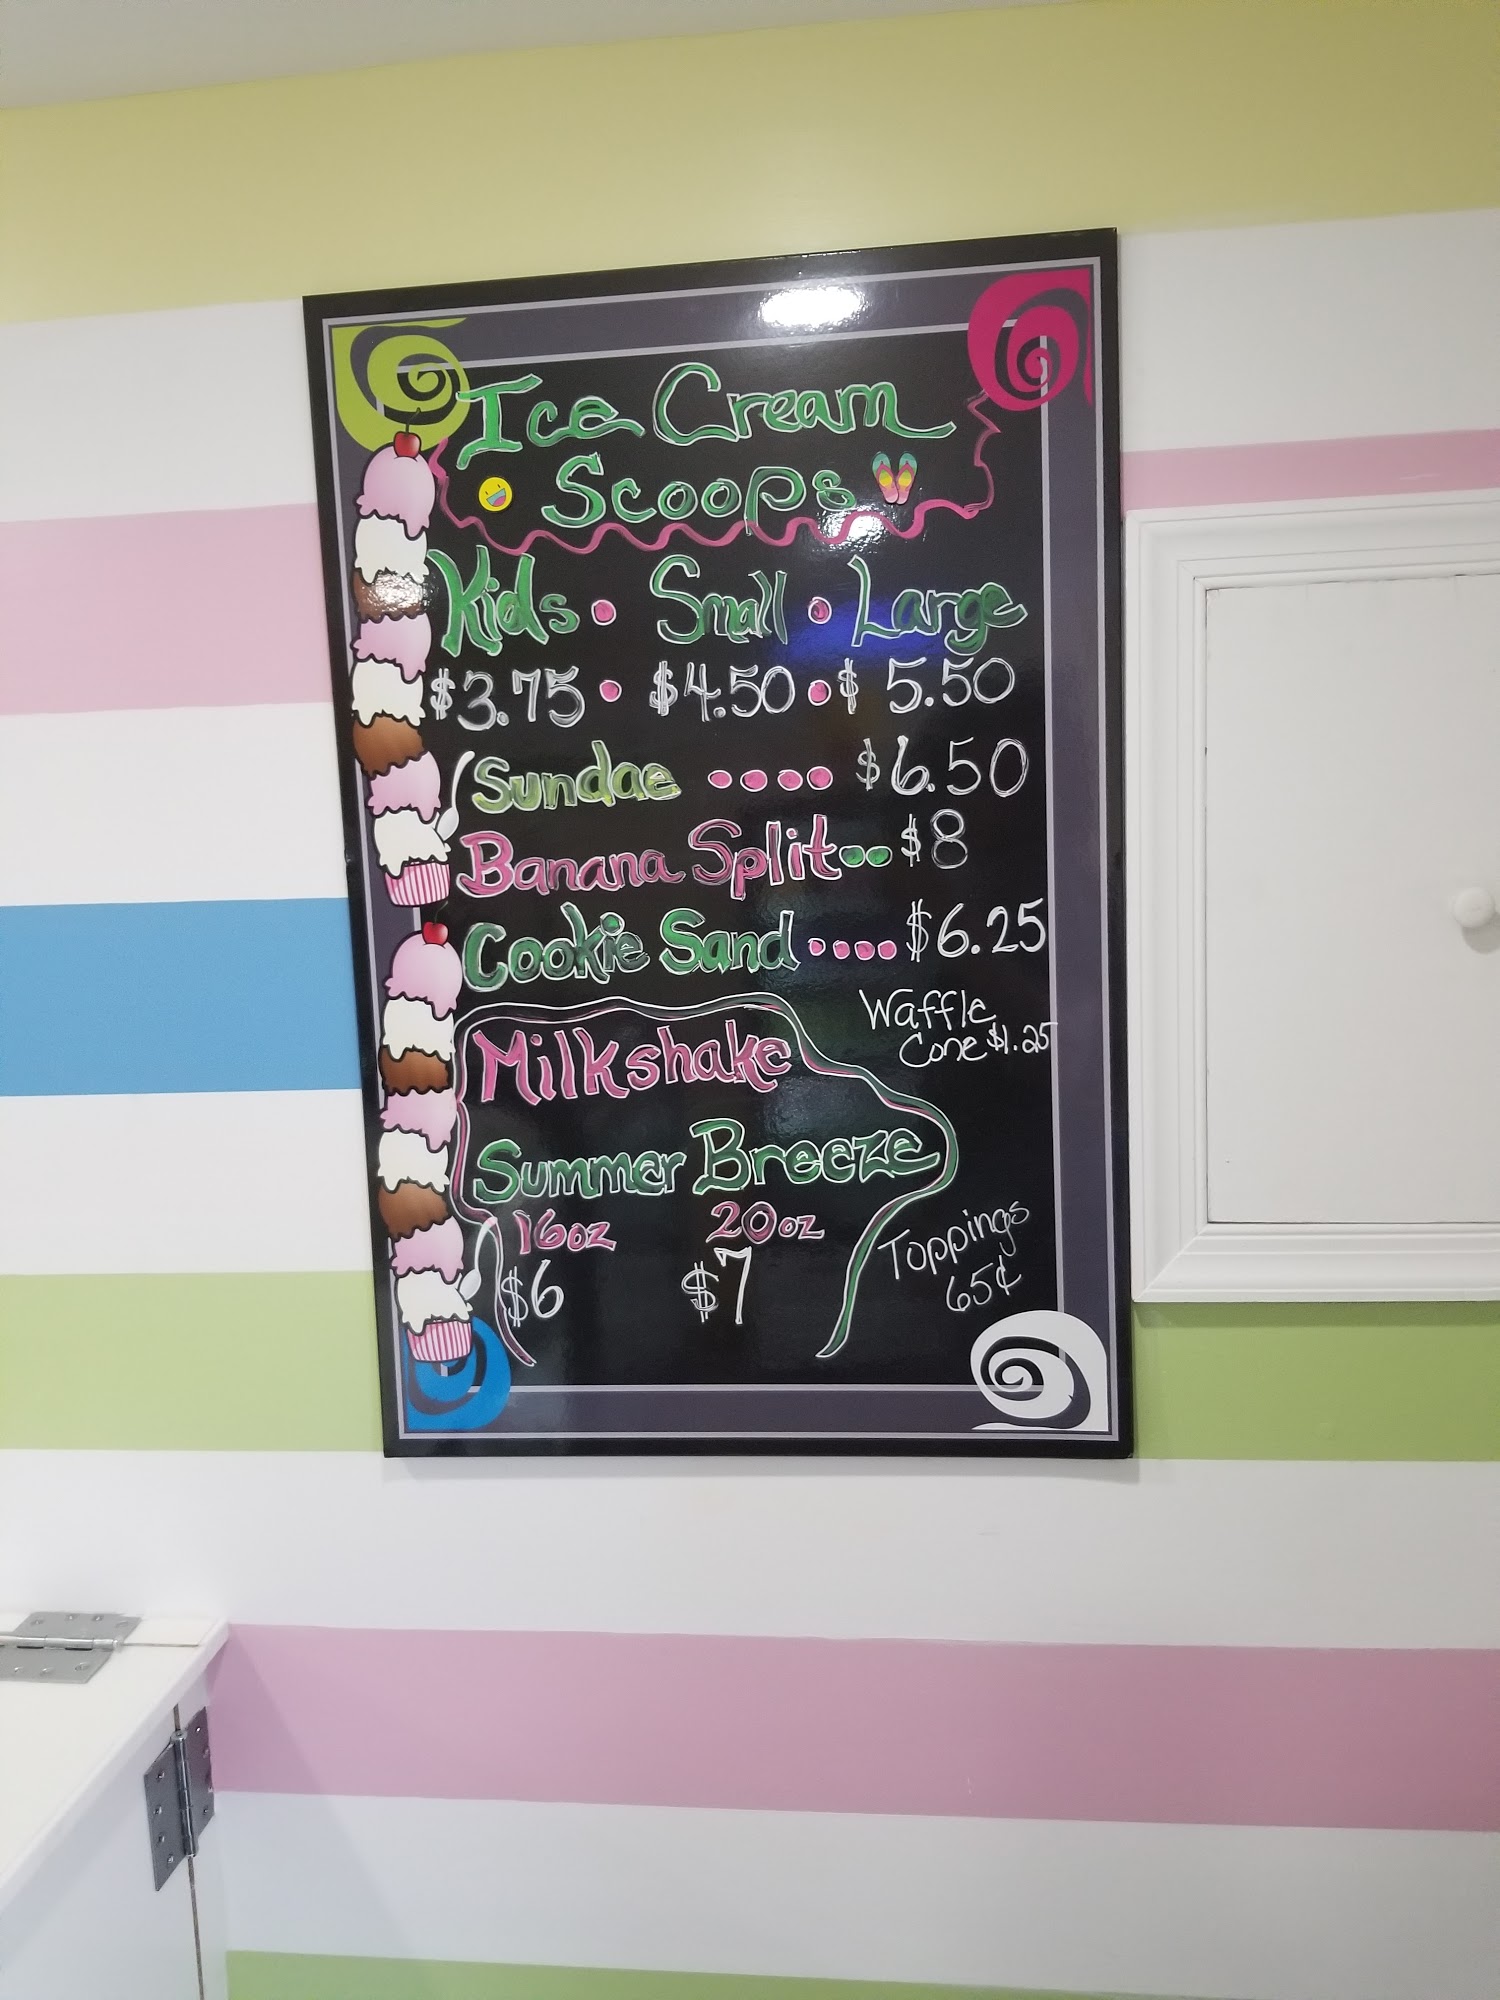 Ice Cream
Scoops
Kids • Small • Large
$3.75 • $4.50 • $5.50
Sundae •••• $6.50
Banana Split •• $8
Cookie Sand •••• $6.25
Waffle
Cone $1.25
Milkshake
Summer Breeze
16oz 20oz
$6 $7
Toppings
65¢